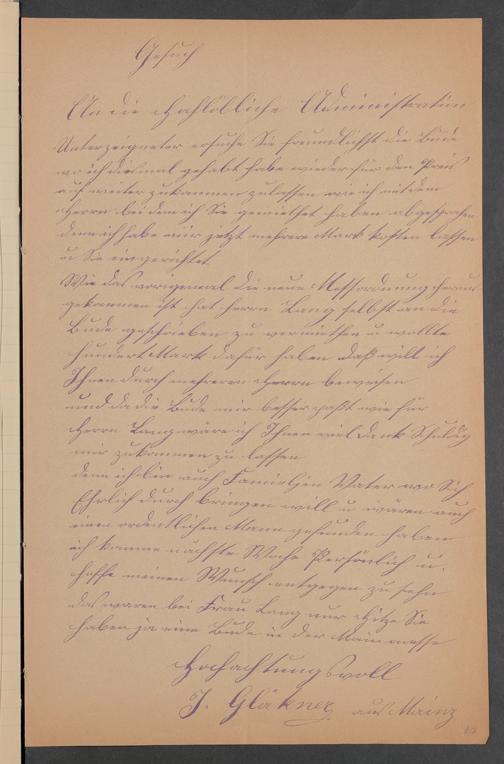 Gesuch
An die Hochlöbliche Administration
Unterzeigneter ersuche Sie freundlichst die Bude
wo ich diesmal gehabt habe wieder für den Preis
auf weiter zukommen zu lassen wie ich mit dem
Herrn bei dem ich Sie gemiethet haben abgesprochen
denn ich habe mir jetzt mehrere Mark kosten lassen
u Sie eingerichtet
Wie das vorigemal die neue Messordnung heraus
gekommen ist hat Herrn Lang selbst an die
Bude geschrieben zu vermiethen u wollte
hundert Mark dafür haben daß will ich
Ihnen durch mehreren Herrn beweisen
und da die Bude mir besser paßt wie für
Herrn Lang wäre ich Ihnen viel Dank Schuldig
mir zukommen zu lassen
denn ich bin auch Familjen Vater wo Sich
Ehrlich durch bringen will u wären auch
einen ordentlichen Mann gefunden haben
ich komme nächste Woche Persönlich u.
hoffe meinen Wunsch entgegen zu sehn
das waren bei Frau Lang nur Sie
haben ja eine Bude in der Mainmesse
Hochachtungsvoll
J. Gläkner aus Mainz